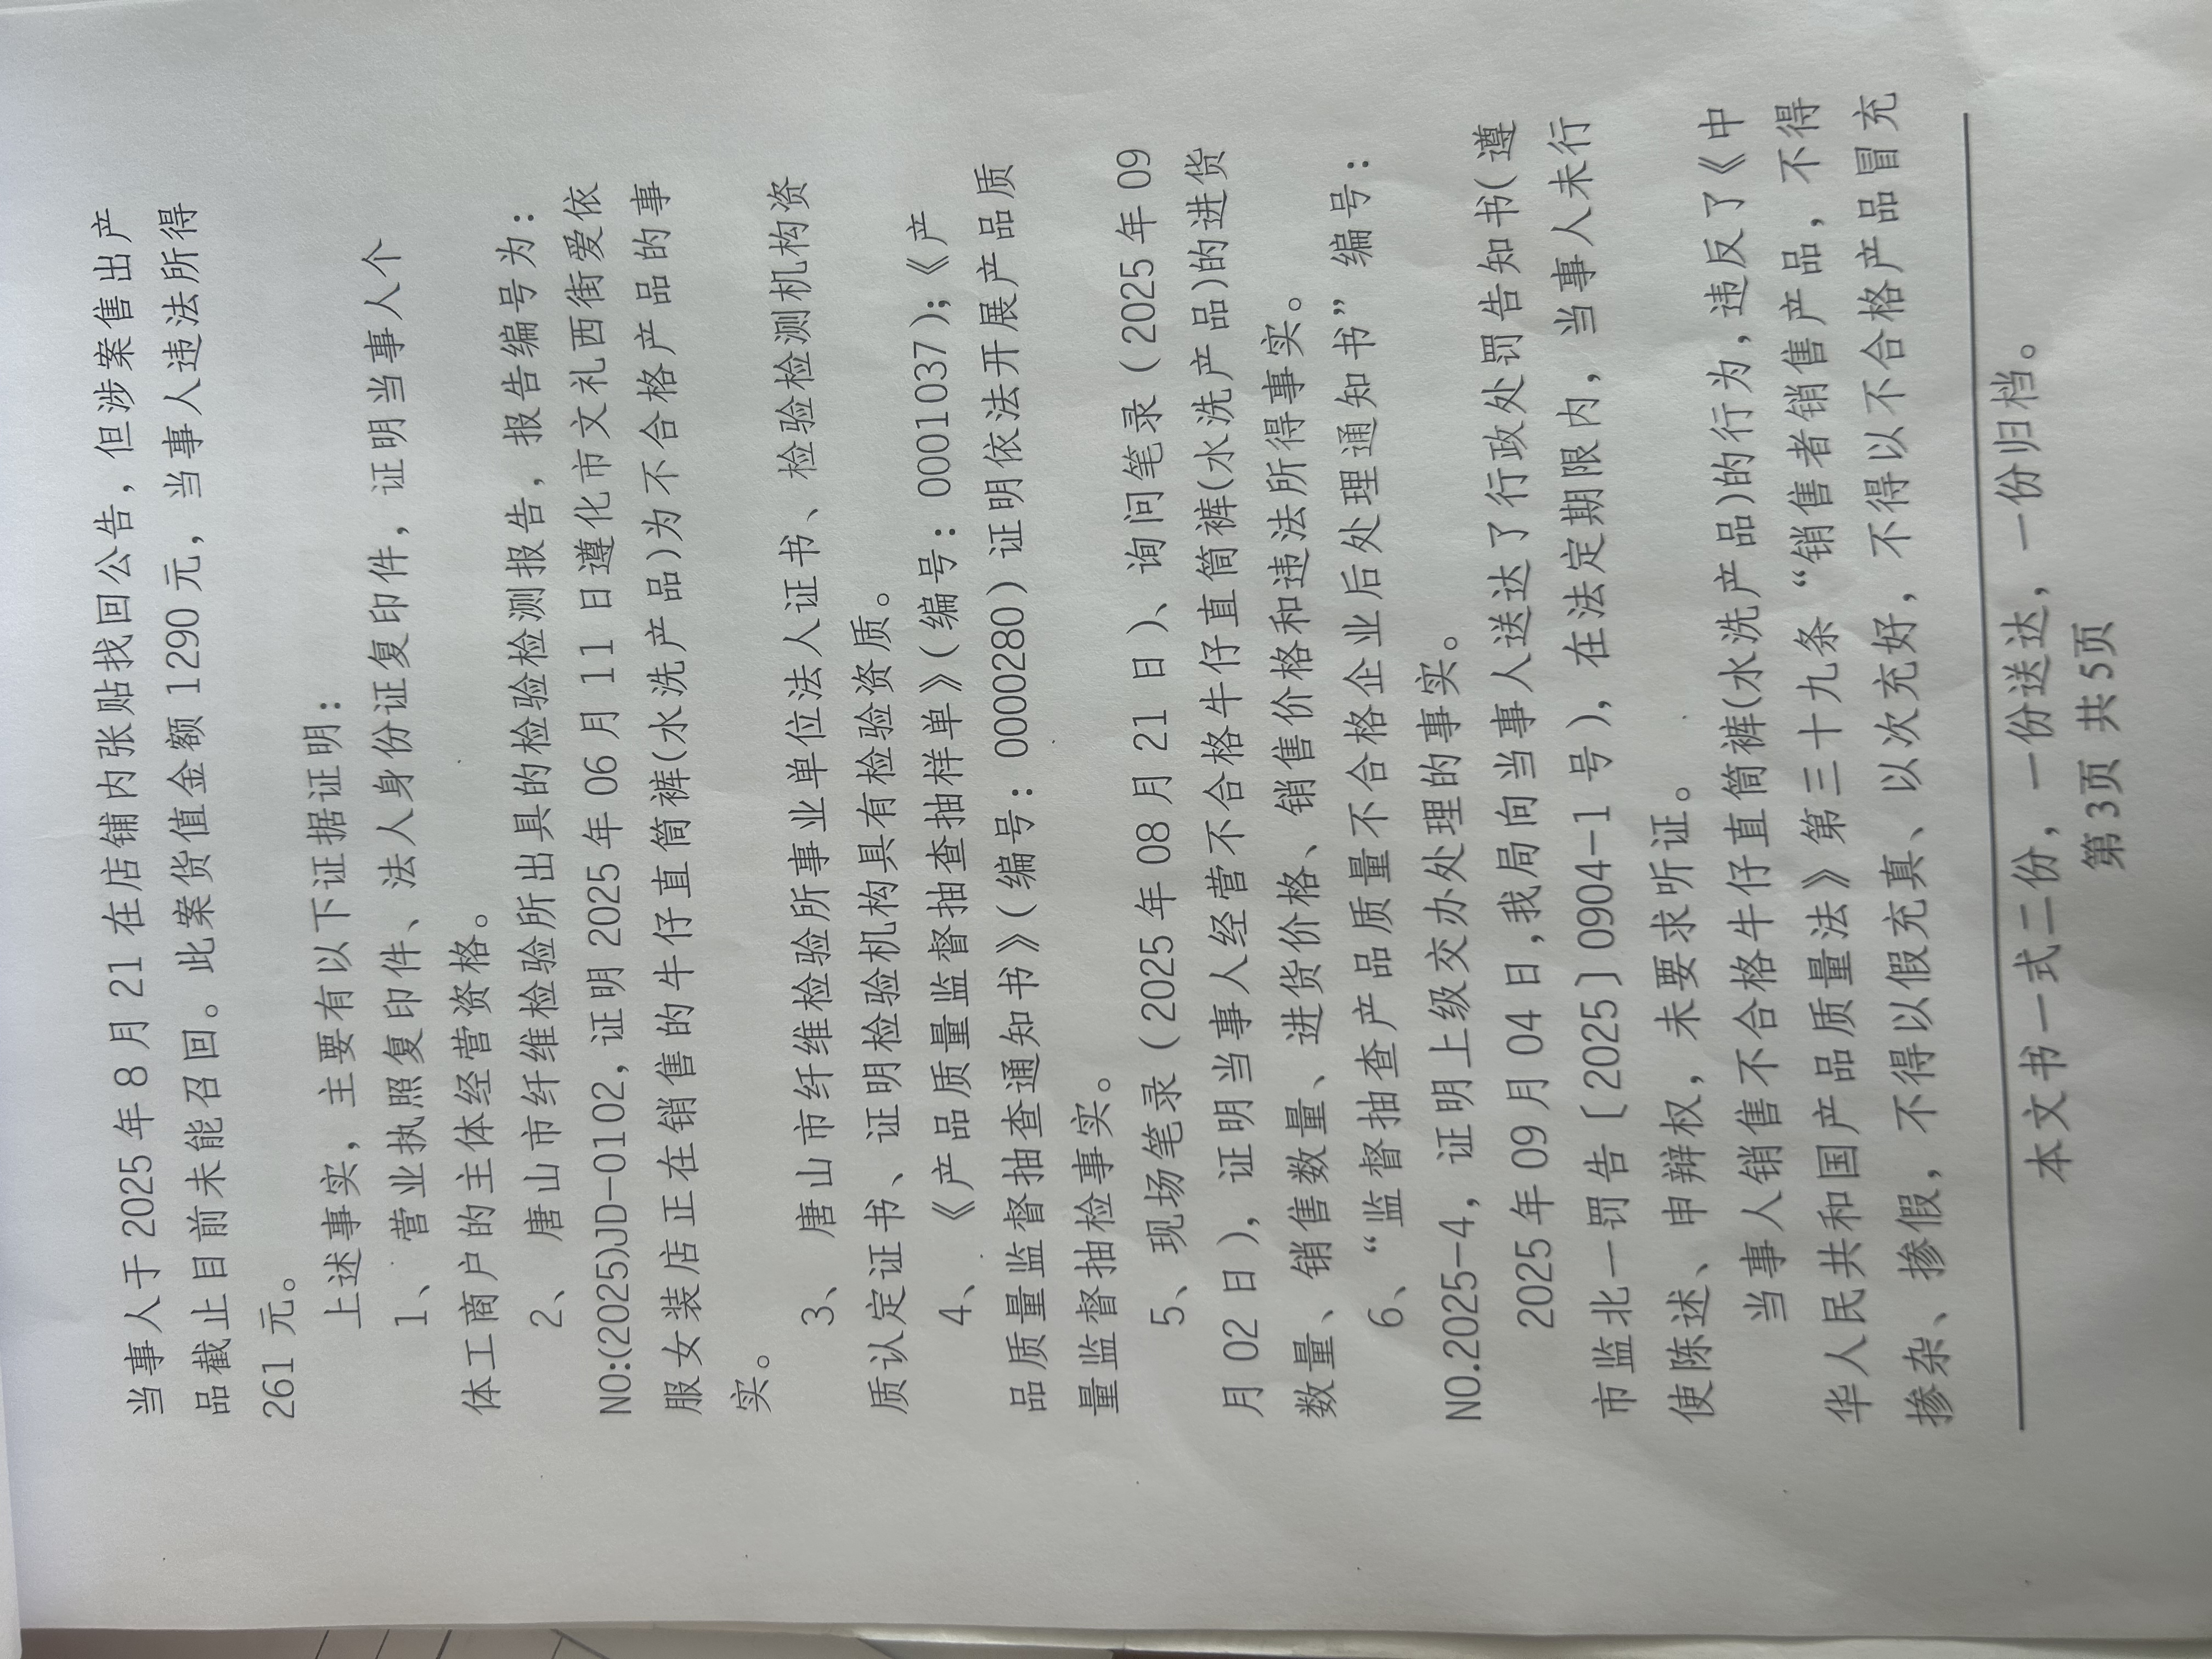 当事人于2025年8月21在店铺内张贴找回公告，但涉案售出产
品截止目前未能召回。此案货值金额1290元，当事人违法所得
261元。
上述事实，主要有以下证据证明：
1、营业执照复印件、法人身份证复印件，证明当事人个
体工商户的主体经营资格。
2、唐山市纤维检验所出具的检验检测报告，报告编号为：
NO:(2025)JD-0102,证明2025年06月11日遵化市文礼西街爱依
服女装店正在销售的牛仔直筒裤(水洗产品)为不合格产品的事
实。
3、唐山市纤维检验所事业单位法人证书、检验检测机构资
质认定证书、证明检验机构具有检验资质。
4、《产品质量监督抽查抽样单》（编号：0001037）；《产
品质量监督抽查通知书》（编号：0000280）证明依法开展产品质
量监督抽检事实。
5、现场笔录（2025年08月21日）、询问笔录（2025年09
月02日），证明当事人经营不合格牛仔直筒裤(水洗产品)的进货
数量、销售数量、进货价格、销售价格和违法所得事实。
6、“监督抽查产品质量不合格企业后处理通知书”编号：
NO.2025-4，证明上级交办处理的事实。
2025年09月04日,我局向当事人送达了行政处罚告知书（遵
市监北一罚告〔2025〕0904-1号），在法定期限内，当事人未行
使陈述、申辩权，未要求听证。
当事人销售不合格牛仔直筒裤(水洗产品)的行为,违反了《中
华人民共和国产品质量法》第三十九条“销售者销售产品，不得
掺杂、掺假，不得以假充真、以次充好，不得以不合格产品冒充
本文书一式二份，一份送达，一份归档。
第3页 共5页